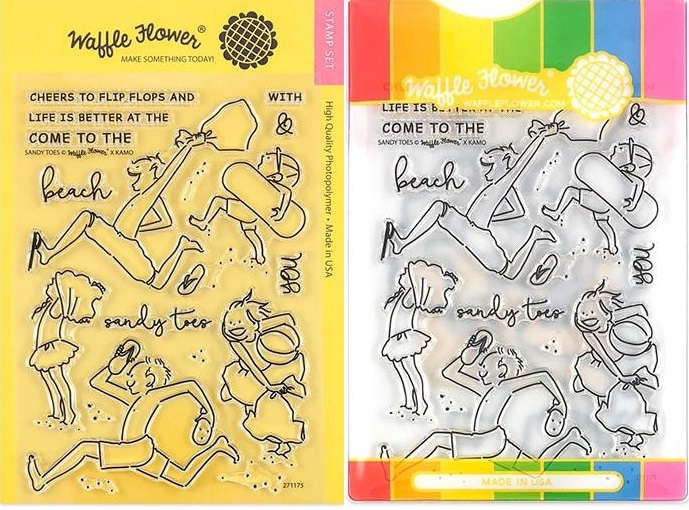 Waffle Flower®
MAKE SOMETHING TODAY!
STAMP SET
High Quality Photopolymer • Made in USA
CHEERS TO FLIP FLOPS AND WITH
LIFE IS BETTER AT THE &
COME TO THE
SANDY TOES © Waffle Flower® X KAMO
beach
you
sandy toes
271175
Waffle Flower®
WAFFLEFLOWER.COM
LIFE IS BETTER AT THE
&
COME TO THE
SANDY TOES © Waffle Flower® X KAMO
beach
you
sandy toes
MADE IN USA
271175